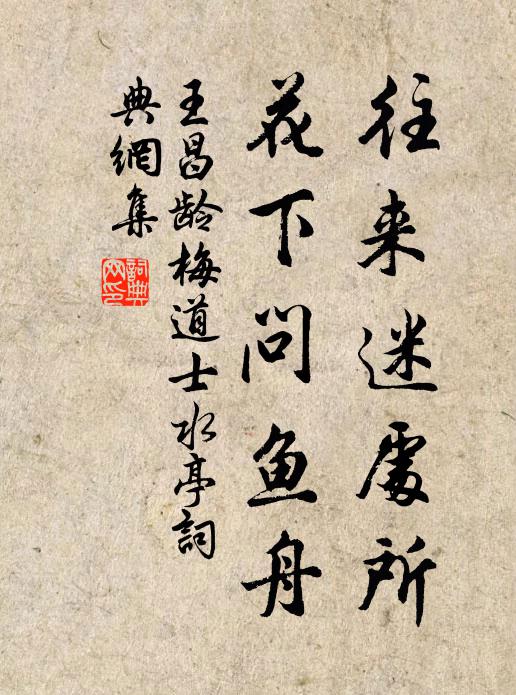 往来迷處所
花下问鱼舟
王昌龄梅道士水亭詞
典網集
詞典
网印